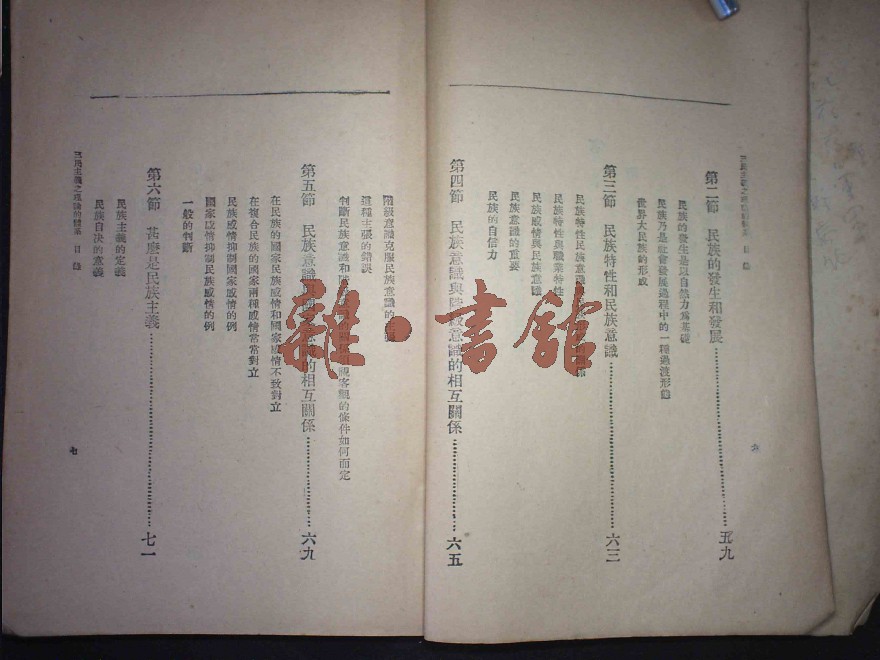 三民主義之理論的體系 目錄
第二節 民族的發生和發展……五九
民族的發生是以自然力爲基礎
民族乃是社會發展過程中的一種過渡形態
世界大民族的形成
第三節 民族特性和民族意識……六三
民族特性民族意識
民族特性與職業特性
民族感情與民族意識
民族意識的重要
民族的自信力
第四節 民族意識與階級意識的相互關係……六五
六
階級意識克服民族意識的
這種主張的錯誤
判斷民族意識和 觀客觀的條件如何而定
第五節 民族意識與國家意識的相互關係……六九
在民族的國家民族感情和國家感情不致對立
在複合民族的國家兩種感情常常對立
民族感情抑制國家感情的例
國家感情抑制民族感情的例
一般的判斷
第六節 甚麽是民族主義……七一
民族主義的定義
民族自決的意義
三民主義之理論的體系 目錄
七
雜·書館